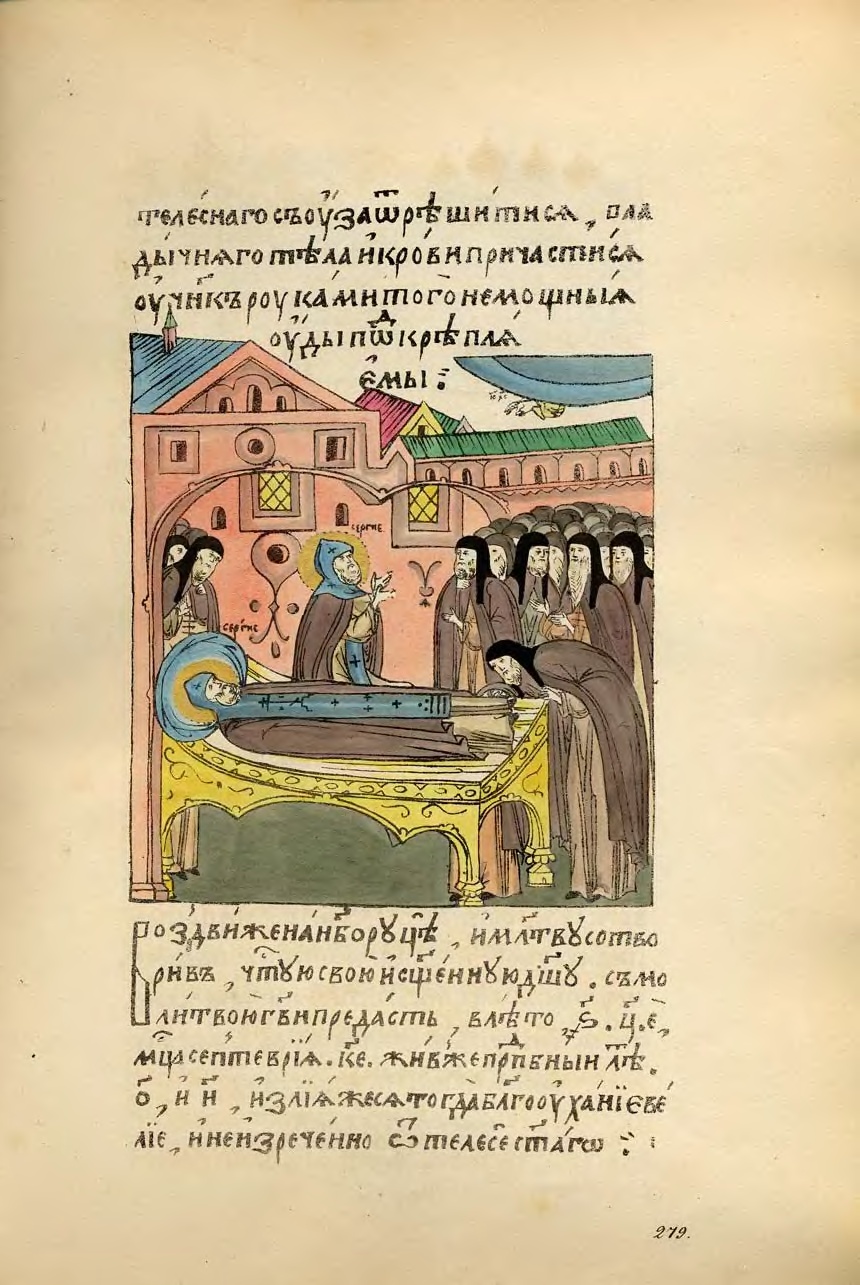 телеснаго съоуза ѿрѣшитисѧ, влⷣа
дычнѧго тѣла и крови причастисѧ
оучн҃къ роуками того немощныѧ
оуды пѿⷣкрѣплѧ
емы:
іс хс
сергие
сергие
воздвиже на нб҃о руцѣ, и мл҃твꙋ сотво
ривъ, чтⷭ҇ꙋю свою и сщ҃еннꙋю дш҃ꙋ. съ мо
литвою гв҃и предасть, в лѣто ҂ѕ҃.ц҃.е҃,
мцⷭ҇а септеврїѧ. к҃е. жив же прпⷣбныи лѣтⷮ.
о҃, и и҃, изліѧ же сѧ тогда бл҃гооуханїе ве
лїе, и неизреченно ѿ телесе ст҃аго :
279.